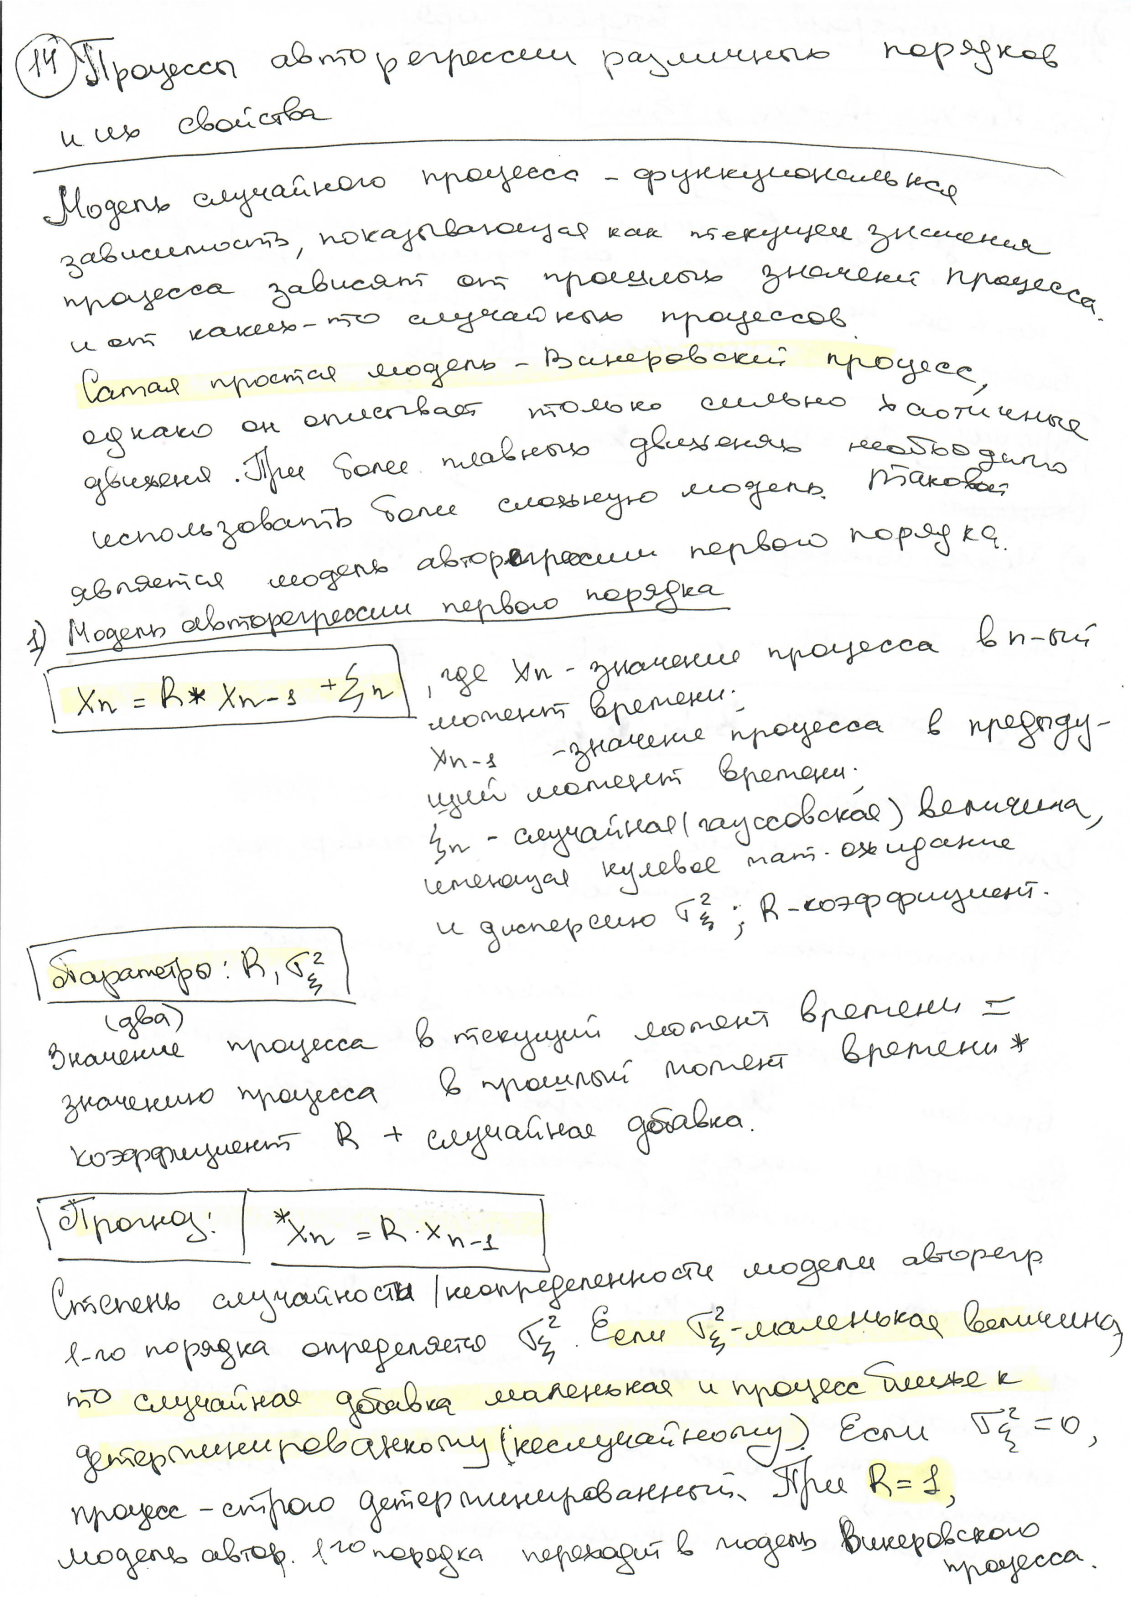 14 Процессы авторегрессии различных порядков
и их свойства
Модель случайного процесса - функциональная
зависимость, показывающая как текущее значения
процесса зависят от прошлых значений процесса
и от каких-то случайных процессов.
Самая простая модель - Винеровский процесс,
однако он описывает только сильно хаотичные
движеня. При более плавных движениях необходимо
использовать более сложную модель. Таковой
является модель авторегрессии первого порядка.
1) Модель авторегрессии первого порядка
Xn = R * Xn-1 + ξn , где Xn - значение процесса в n-ый
момент времени;
Xn-1 - значение процесса в предыду-
щий момент времени;
ξn - случайная (гауссовская) величина,
имеющая нулевое мат. ожидание
и дисперсию σ²ξ ; R - коэффициент.
Параметры: R, σ²ξ
(два)
Значение процесса в текущий момент времени =
значению процесса в прошлый момент времени *
коэффициент R + случайная добавка.
Прогноз: *Xn = R · Xn-1
Степень случайности/неопределенности модели авторегр.
1-го порядка определяется σ²ξ. Если σ²ξ - маленькая величина,
то случайная добавка маленькая и процесс ближе к
детерминированному (неслучайному). Если σ²ξ = 0,
процесс - строго детерминированный. При R = 1,
модель автор. 1го порядка переходит в модель Винеровского
процесса.